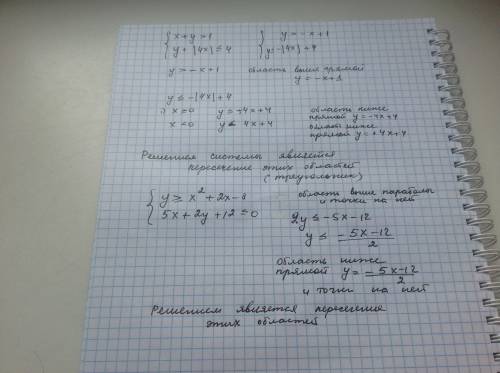 { x+y>1 { y=-x+1
{ y+|4x|≤4 { y=-|4x|+4
y>-x+1 область выше прямой
y=-x+1
y≤-|4x|+4
x≥0 y=-4x+4 область ниже
прямой y=-4x+4
x<0 y≤4x+4 область ниже
прямой y=+4x+4
Решением системы является
пересечение этих областей
(треугольник)
{ y≥x²+2x-8 область выше параболы
и точки на ней
{ 5x+2y+12≤0 2y≤-5x-12
y≤ -5x-12/2
область ниже
прямой y= -5x-12/2
и точки на ней
Решением является пересечение
этих областей